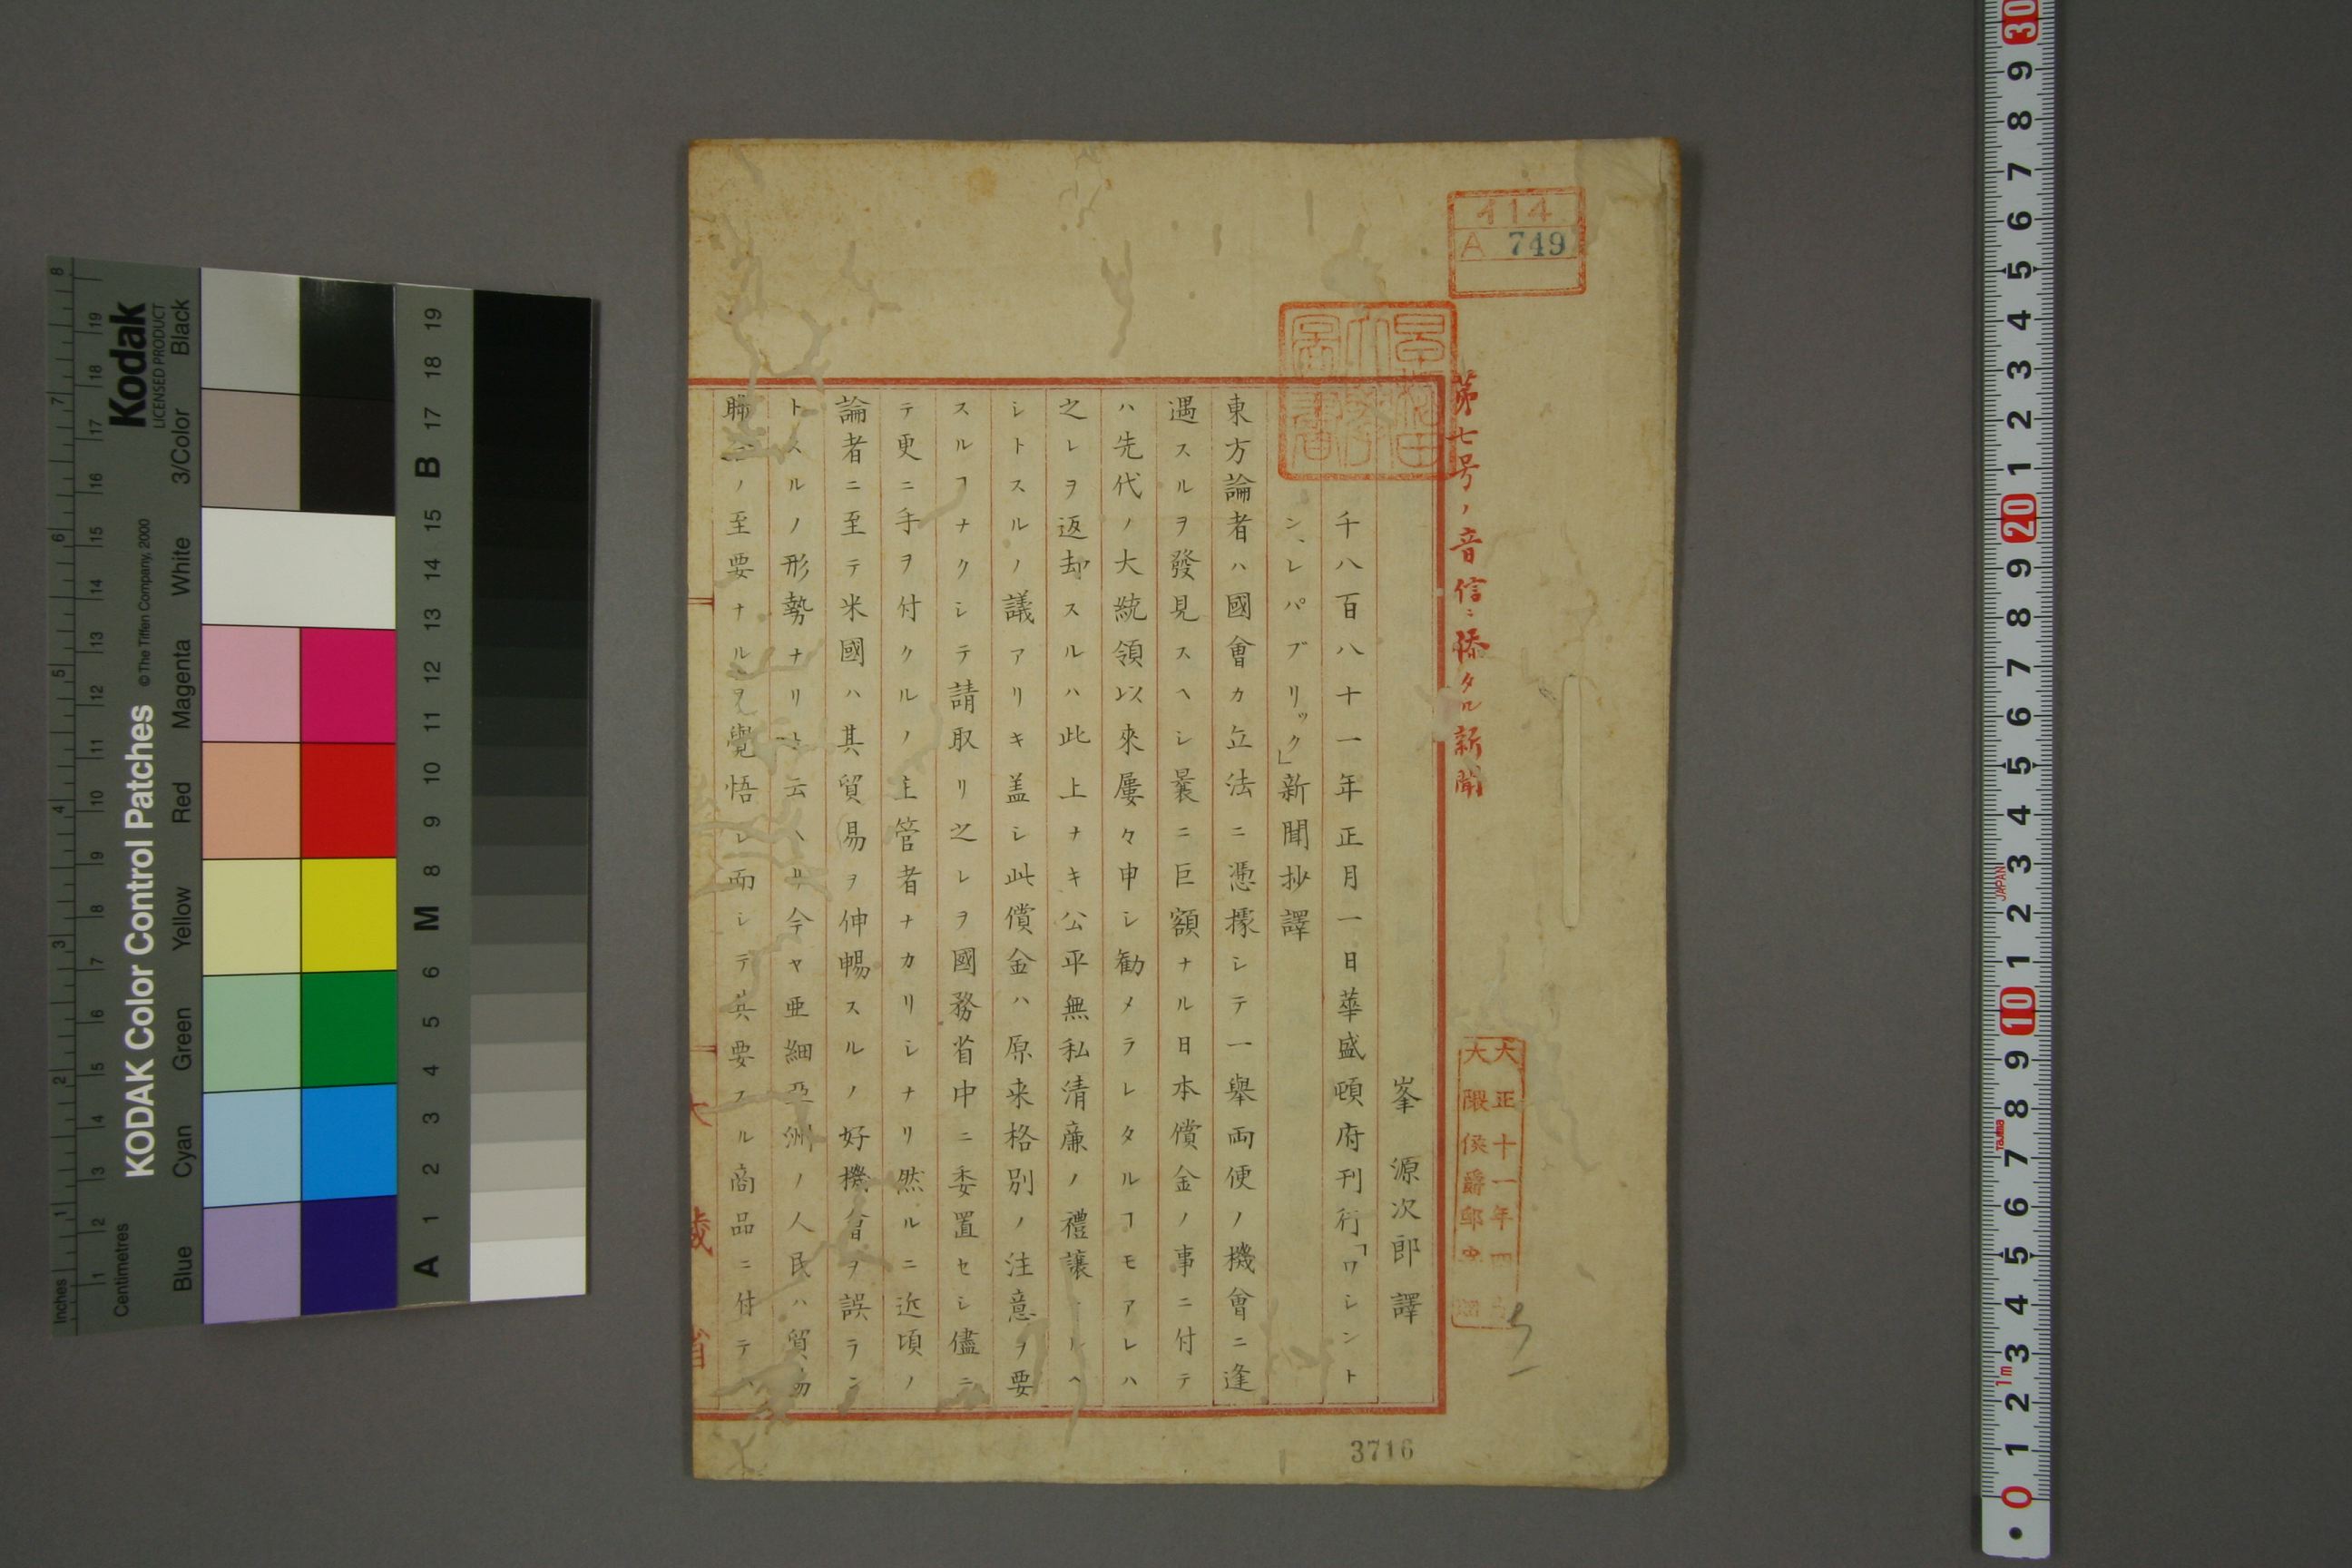 414
A 749
第七号ノ音信ニ添タル新聞
大正十一年
大隈侯爵邸
峯源次郎譯
千八百八十一年正月一日華盛頓府刊行「ワシント
ン、レパブリック」新聞抄譯
東方論者ハ國會カ立法ニ憑據シテ一擧両便ノ機會ニ逢
遇スルヲ發見スヘシ曩ニ巨額ナル日本償金ノ事ニ付テ
ハ先代ノ大統領以來屢々申シ勧メラレタルヿモアレハ
之レヲ返却スルハ此上ナキ公平無私清廉ノ禮讓
シトスルノ議アリキ盖シ此償金ハ原来格別ノ注意ヲ要
スルヿナクシテ請取リ之レヲ國務省中ニ委置セシ儘ニ
テ更ニ手ヲ付クルノ主管者ナカリシナリ然ルニ近頃ノ
論者ニ至テ米國ハ其貿易ヲ伸暢スルノ好機會ヲ誤ラン
トスルノ形勢ナリト云ヘリ今ヤ亜細亞洲ノ人民ハ貿易
聯合ノ至要ナルヲ覺悟シ而シテ其要スル商品ニ付テ
3716
KODAK Color Control Patches
© The Tiffen Company, 2000
Kodak
LICENSED PRODUCT
Inches
Centimetres
Blue Cyan Green Yellow Red Magenta White 3/Color Black
A 1 2 3 4 5 6 M 8 9 10 11 12 13 14 15 B 17 18 19
JAPAN
Tajima
1m